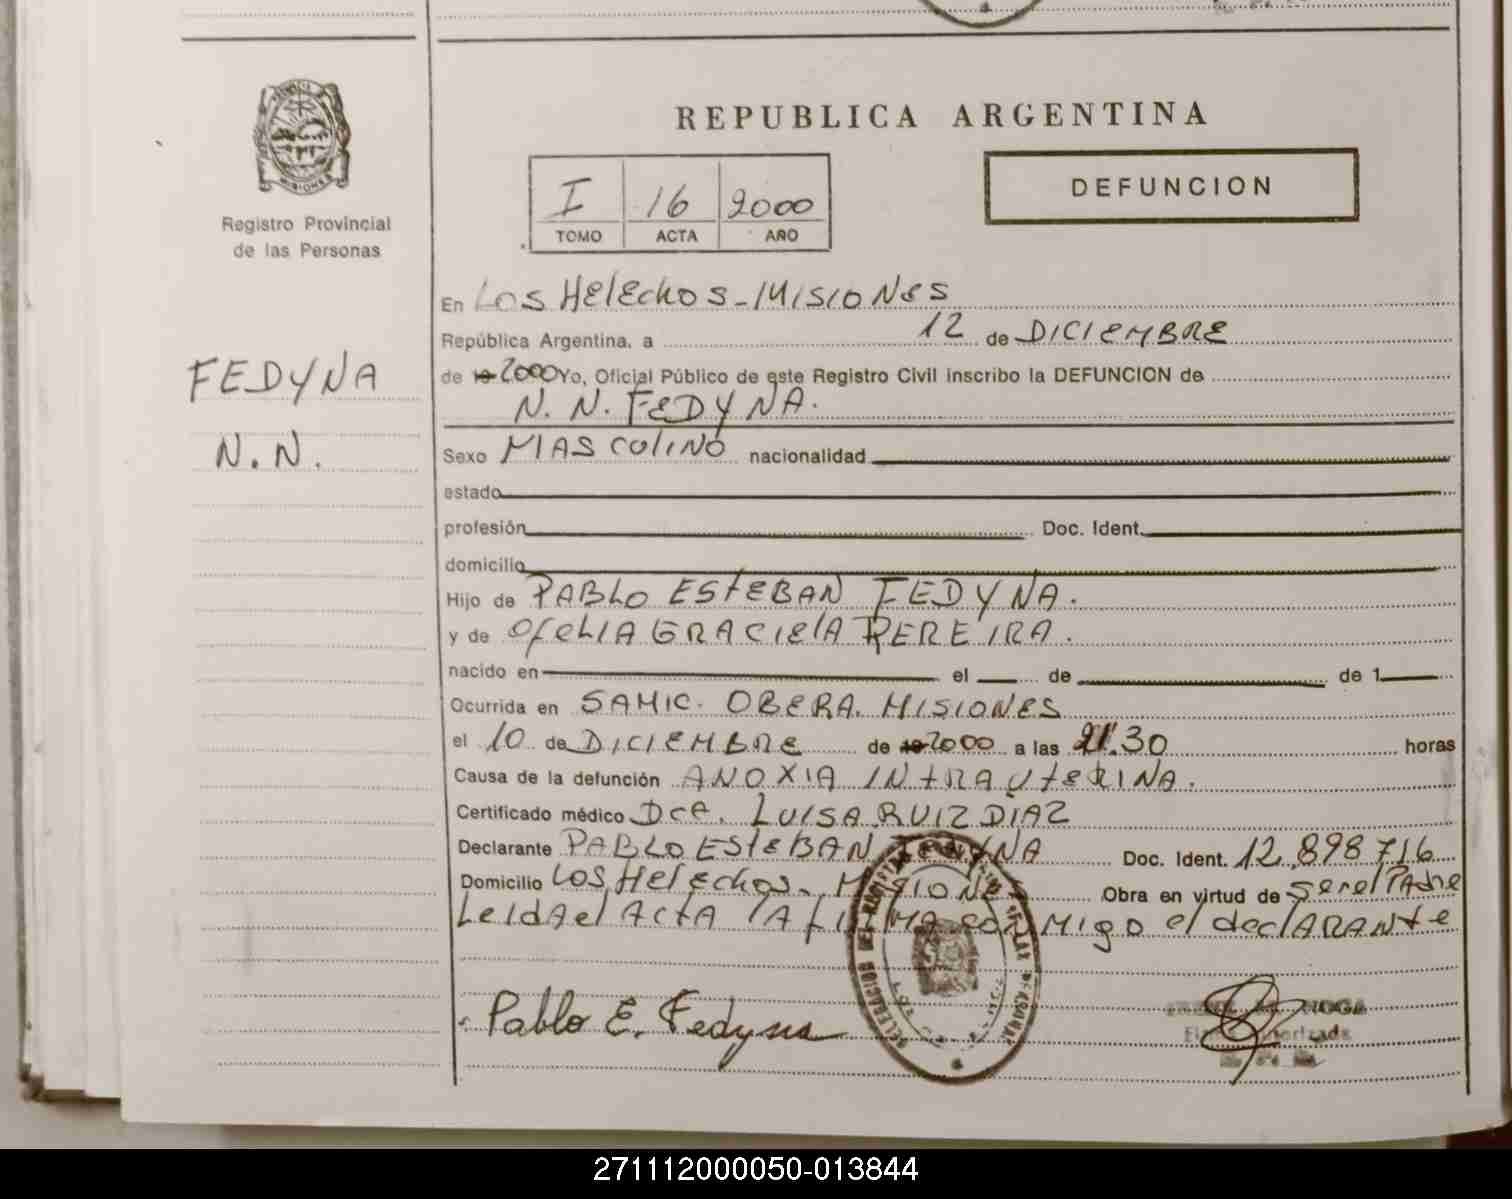 MISIONES
Registro Provincial
de las Personas
FEDYNA
N.N.
REPUBLICA ARGENTINA
I 16 2000
TOMO ACTA AÑO
DEFUNCION
En Los Helechos - MISIONES
República Argentina, a 12 de DICIEMBRE
de 19 2000 Yo, Oficial Público de este Registro Civil inscribo la DEFUNCION de
N. N. FEDYNA.
Sexo MASCULINO nacionalidad
estado
profesión Doc. Ident.
domicilio
Hijo de PABLO ESTEBAN FEDYNA.
y de OFELIA GRACIELA PEREIRA.
nacido en el de de 1
Ocurrida en SAMIC. OBERA. MISIONES
el 10 de DICIEMBRE de 19 2000 a las 21.30 horas
Causa de la defunción ANOXIA INTRAUTERINA.
Certificado médico Dra. LUISA RUIZ DIAZ
Declarante PABLO ESTEBAN FEDYNA Doc. Ident. 12.898.716
Domicilio Los Helechos. MISIONES Obra en virtud de ser el PAdre
LeIdA el ActA lA fIRMA conMIgo el declARANte
Pablo E. Fedyna
DELEGACION DEL REGISTRO
271112000050-013844